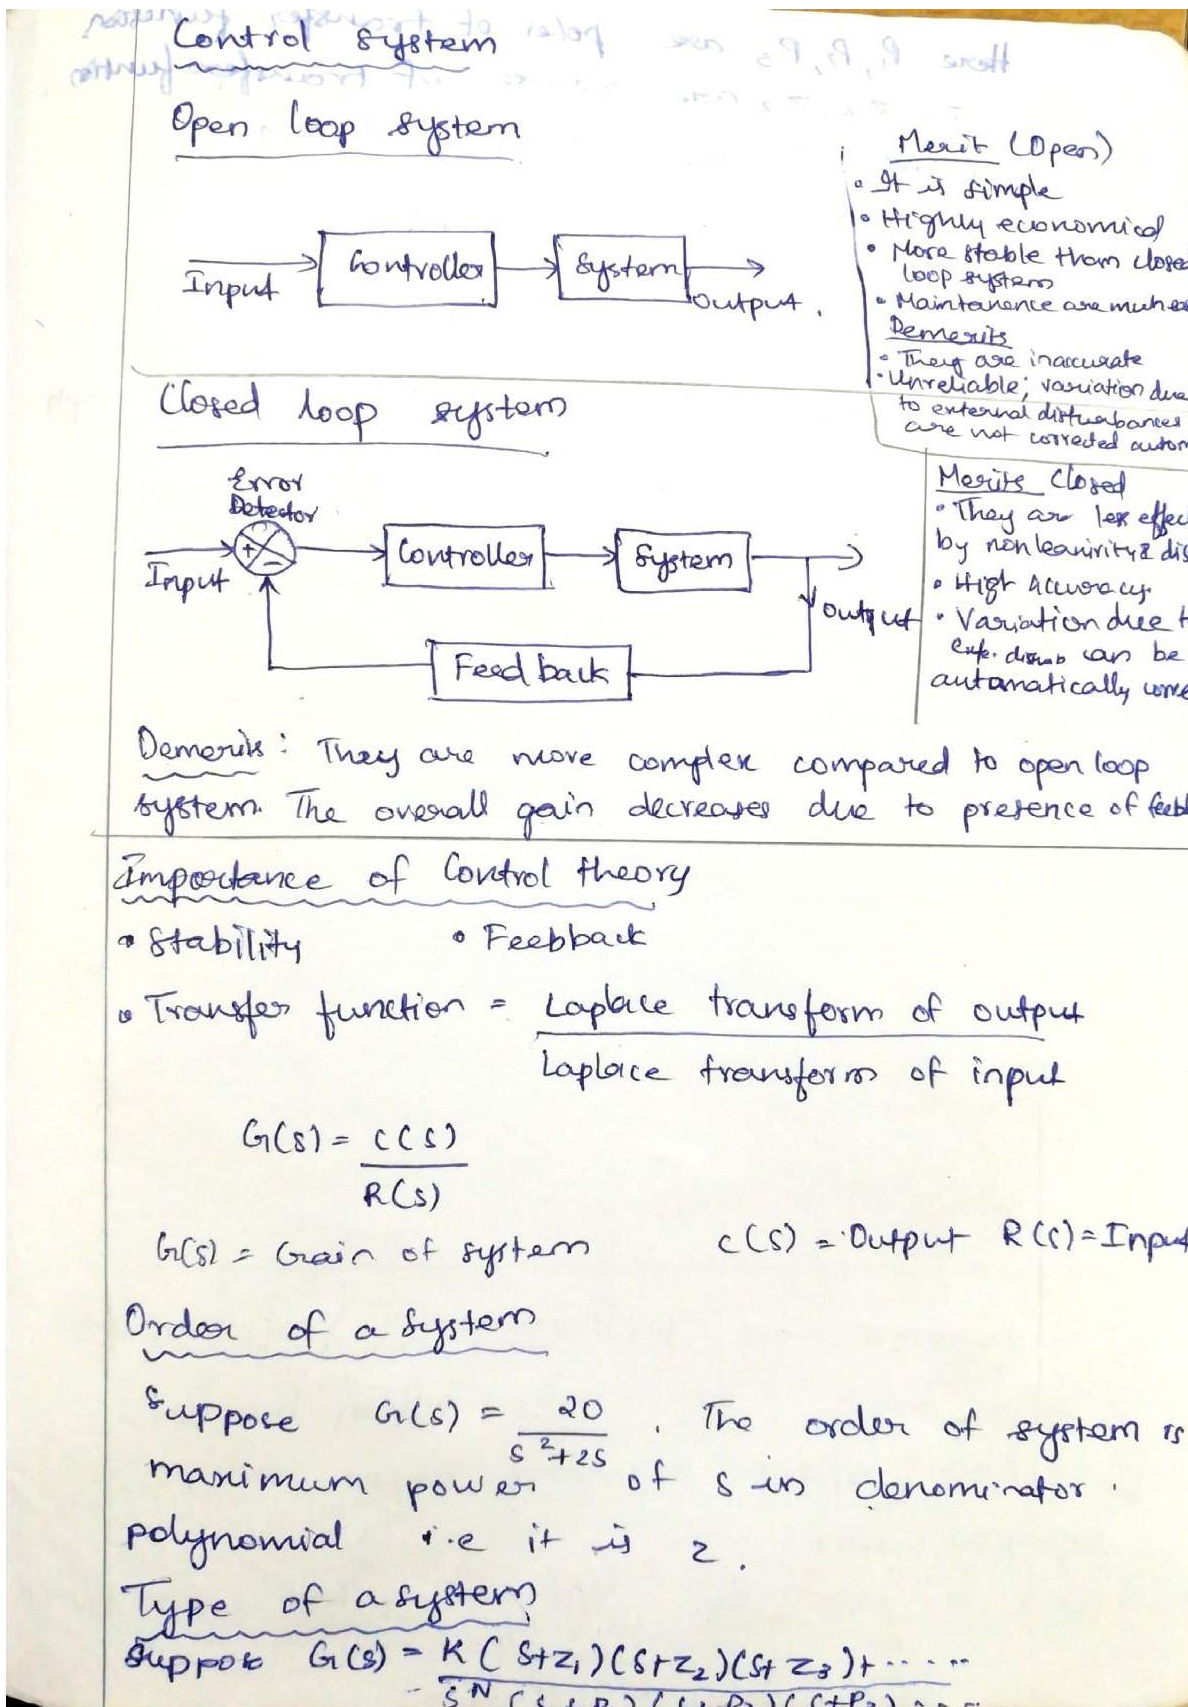 Control system
Open loop system
Input
Controller
System
Output.
Merit (Open)
• It is simple
• Highly economical
• More stable than close
loop system
• Maintanence are much
Demerits
• They are inaccurate
• Unreliable; variation due
to external disturbances
are not corrected autom
Closed loop system
Error
Detector
+
-
Input
Controller
System
Output
Feedback
Merits Closed
• They are less effec
by non leanirity & dis
• High Accuracy.
• Variation due t
exte. disturb can be
automatically corre
Demerits: They are more complex compared to open loop
system. The overall gain decreases due to presence of feedb
Importance of Control theory
• Stability • Feebback
• Transfer function = Laplace transform of output
Laplace transform of input
G(s) = C(s)
R(s)
G(s) = Gain of system C(s) = Output R(s) = Input
Order of a System
Suppose G(s) = 20 . The order of system is
s²+2s
maximum power of s in denominator.
polynomial i.e it is 2.
Type of a system
Suppose G(s) = K(S+Z₁)(S+Z₂)(S+Z₃)+.....